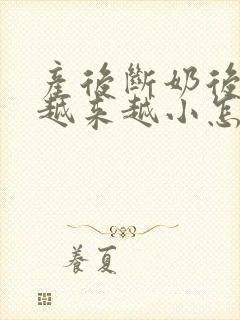 產後斷奶後
越来越小怎
養夏